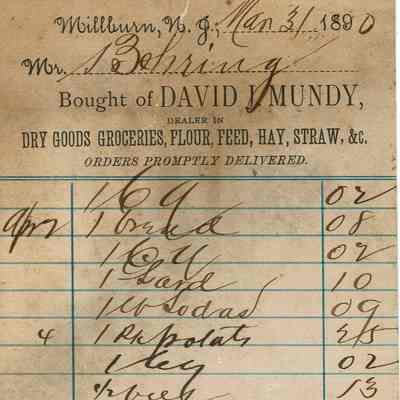 Millburn, N. J., Mar 31 1890
Mr. Bohring
Bought of DAVID MUNDY,
DEALER IN
DRY GOODS GROCERIES, FLOUR, FEED, HAY, STRAW, &c.
ORDERS PROMPTLY DELIVERED.
1 02
Apr 2 1 bread 08
1 02
1 Lard 10
1 lb Sodas 09
4 1 Pk potats 25
1 02
1/2 13